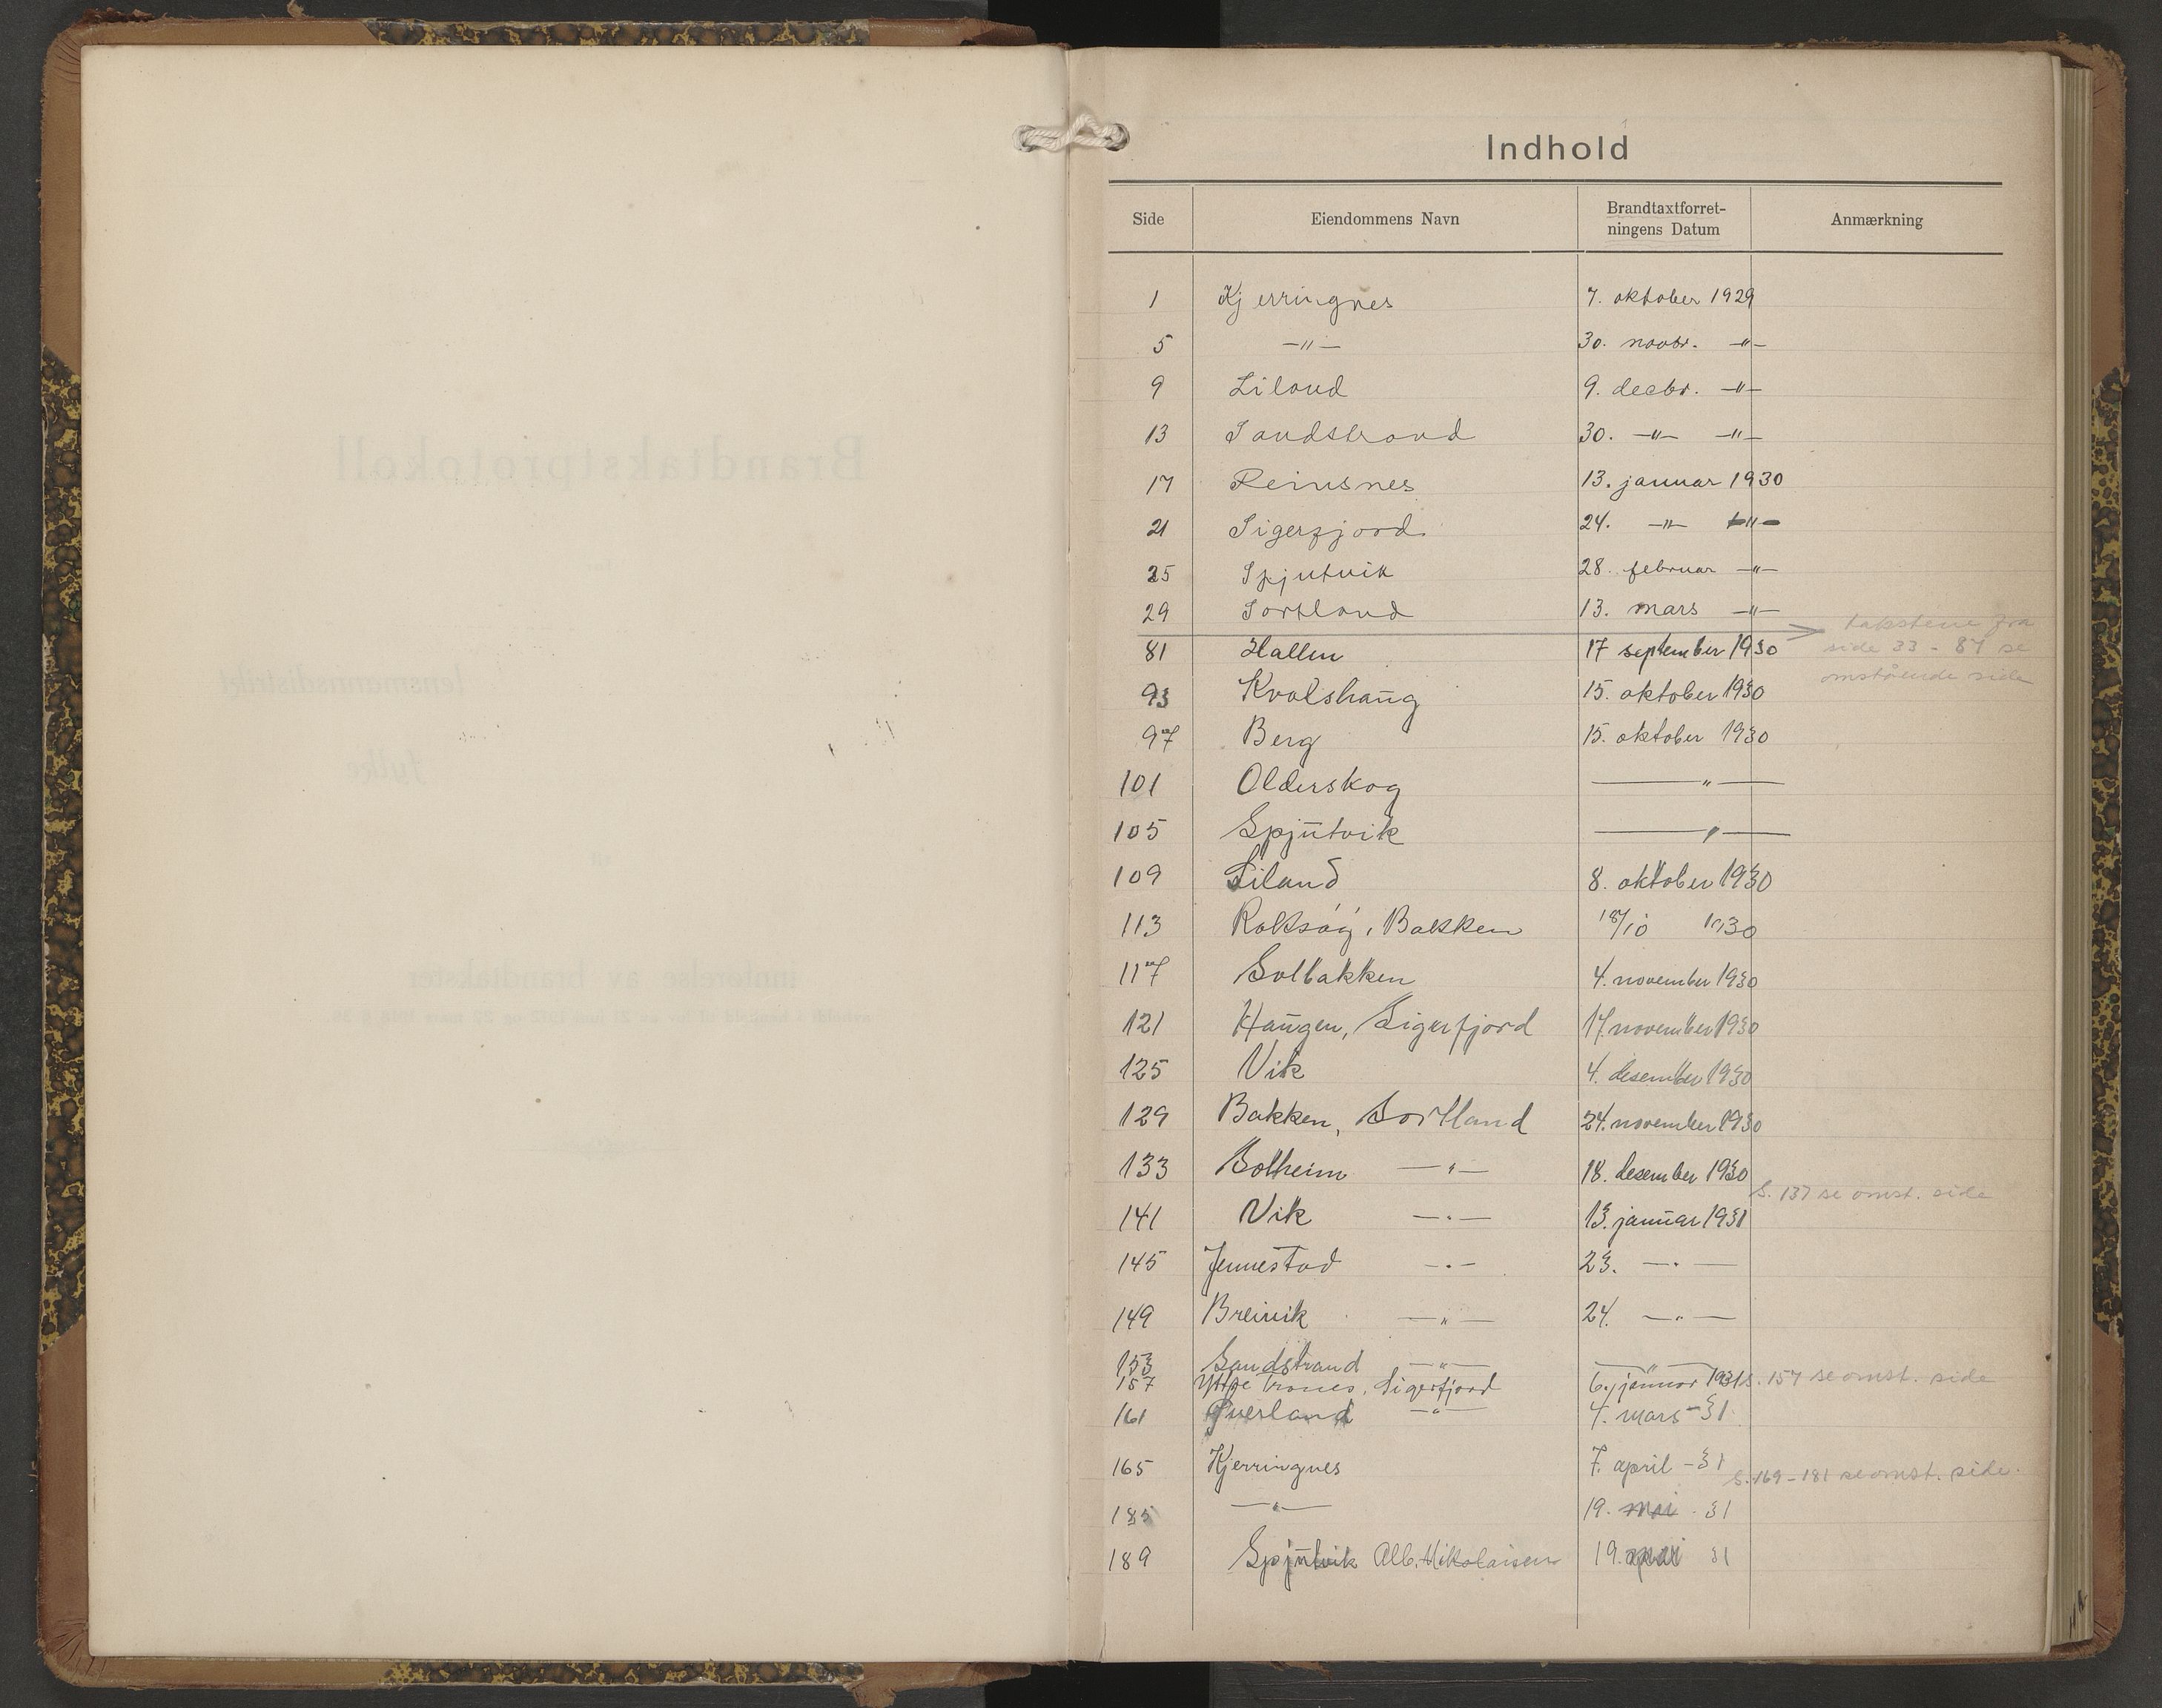 Indhold
Side Eiendommens Navn Brandtaxtforret-ningens Datum Anmærkning
1 Kjerringnes 7. oktober 1929
5 —"— 30. novbr. —"—
9 Liland 9. decbr. —"—
13 Sandstrand 30. —"— —"—
17 Reinsnes 13. januar 1930
21 Sigerfjord 24. —"— —"—
25 Spjutvik 28. februar —"—
29 Sortland 13. mars —"—
takstene fra
side 33 - 87 se
omstående side
81 Hallen 17 september 1930
93 Kvalshaug 15. oktober 1930
97 Berg 15. oktober 1930
101 Olderskog —"—
105 Spjutvik —"—
109 Liland 8. oktober 1930
113 Roksøy, Bakken 18/10 1930
117 Solbakken 4. november 1930
121 Haugen, Sigerfjord 17. november 1930
125 Vik 4. desember 1930
129 Bakken, Sortland 24. november 1930
133 Solheim —"— 18. desember 1930
S. 137 se omst. side
141 Vik —"— 13. januar 1931
145 Jennestad —"— 23. —"—
149 Breivik —"— 24. —"—
153 Sandstrand —"— —"—
157 Sigerfjord 6. januar 1931 s. 157 se omst. side
161 Kverland —"— 4. mars - 31
165 Kjerringnes 7. april - 31
S. 169 - 181 se omst. side.
185 —"— 19. mai - 31
189 Spjutvik Alb. Nikolaisen 19. 31
Brandtakstprotokoll
lensmannsdistrikt
fylke
til
innførelse av brandtakster